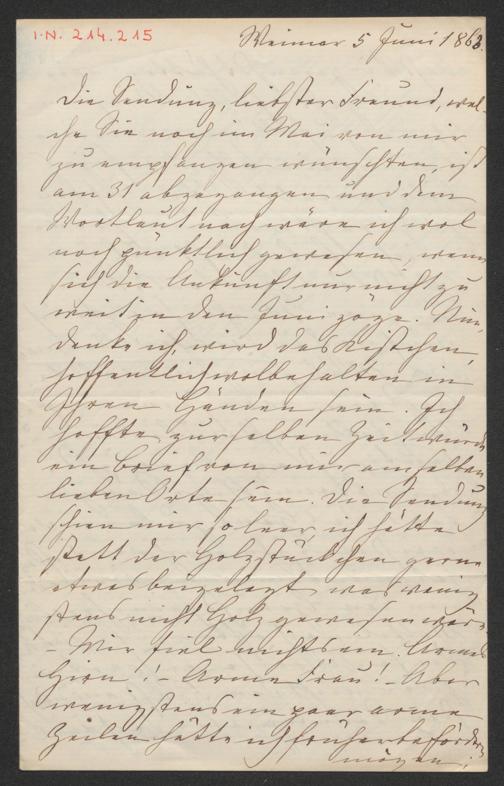 I.N. 214.215
Weimar 5 Juni 1863.
Die Sendung, liebster Freund, wel-
che Sie noch im Mai von mir
zu empfangen wünschten, ist
am 31 abgegangen und dem
Wortlaut nach wäre ich wol
noch pünktlich gewesen, wenn
sich die Ankunft nur nicht zu
weit in den Juni zöge. Nun,
denke ich, wird das Kistchen,
hoffentlich wolbehalten in
Ihren Händen sein. Ich
hoffte zur selben Zeit würde
ein Brief von mir am selben
lieben Orte sein. Die Sendung
schien mir so leer, ich hätte
statt der Holzstückchen gerne
etwas beigelegt was wenig
stens nicht Holz gewesen wäre
– Mir fiel nichts ein. Armes
Hirn! – Arme Frau! – Aber
wenigstens ein paar arme
Zeilen hätte ich früher befördern
mögen;